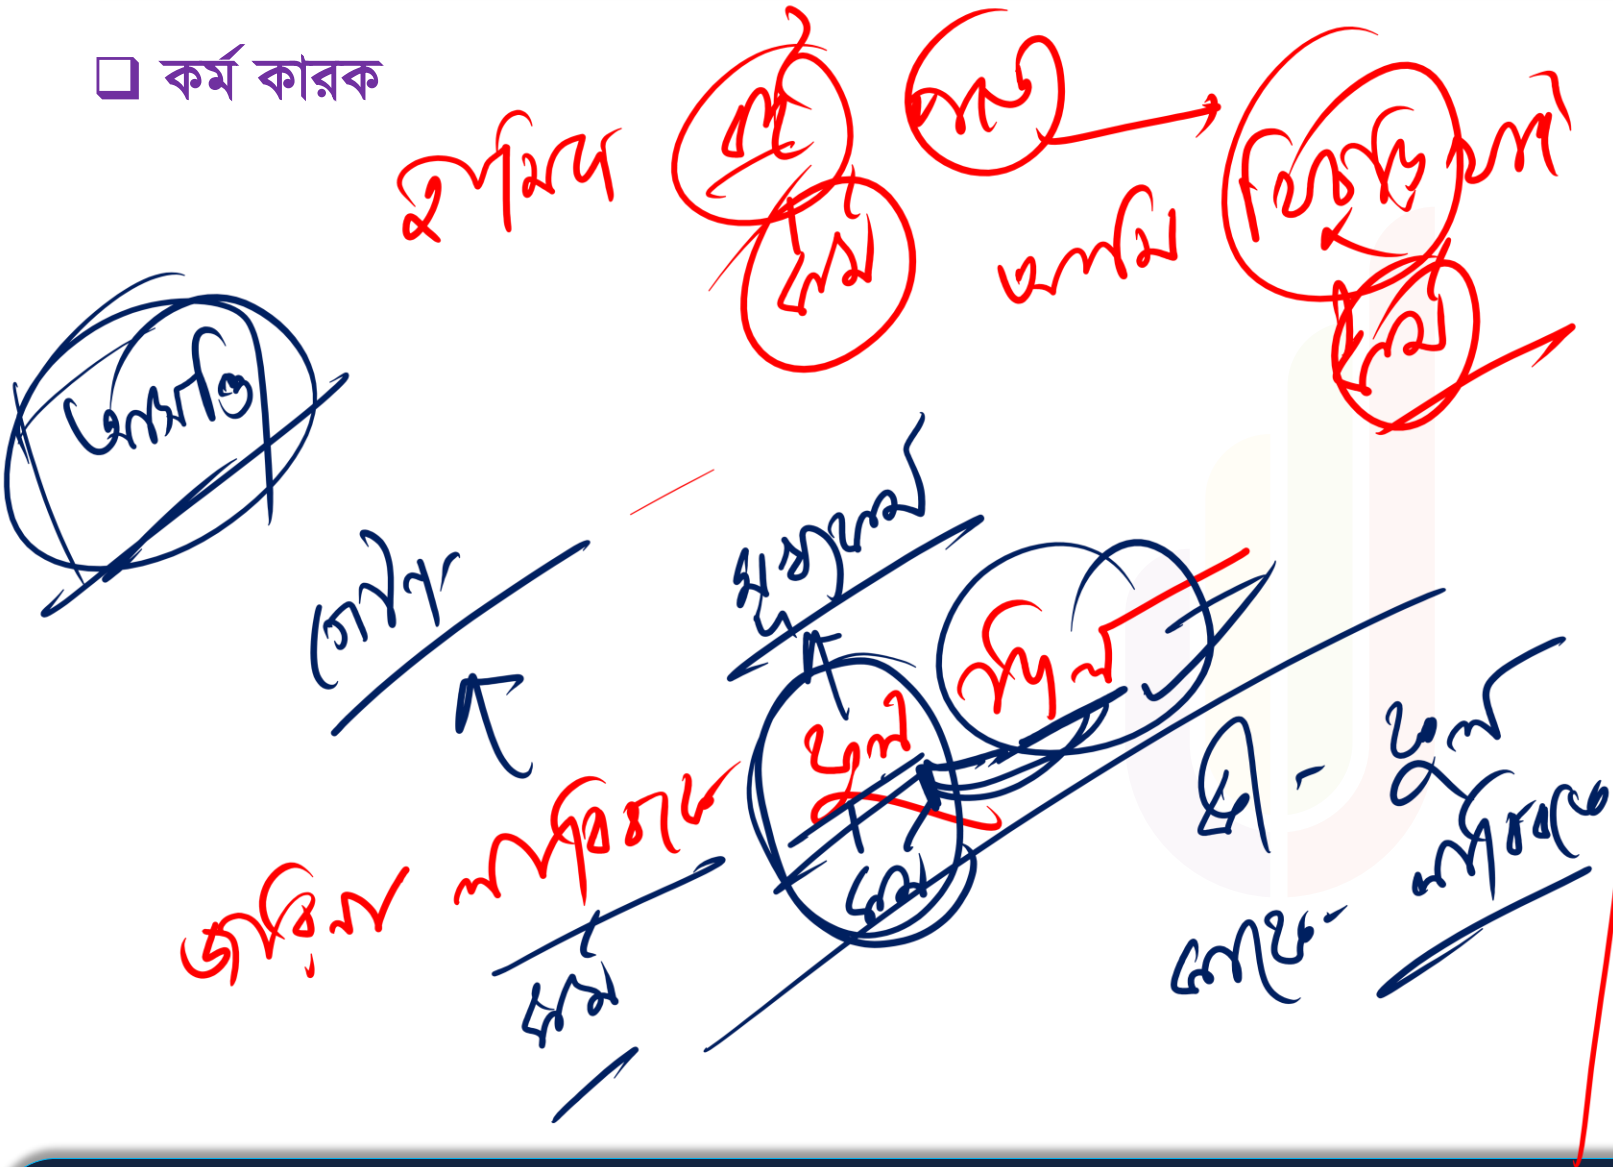 কর্ম কারক
হামিদ বই পড়ে
কর্ম
আমি খিচুড়ি খাই
কর্ম
আসত্তি
গৌণ
মুখ্যকর্ম
জারিনা লাবিবাকে ফুল দিল
কর্ম কর্ম
কী - ফুল
কাকে - লাবিবাকে